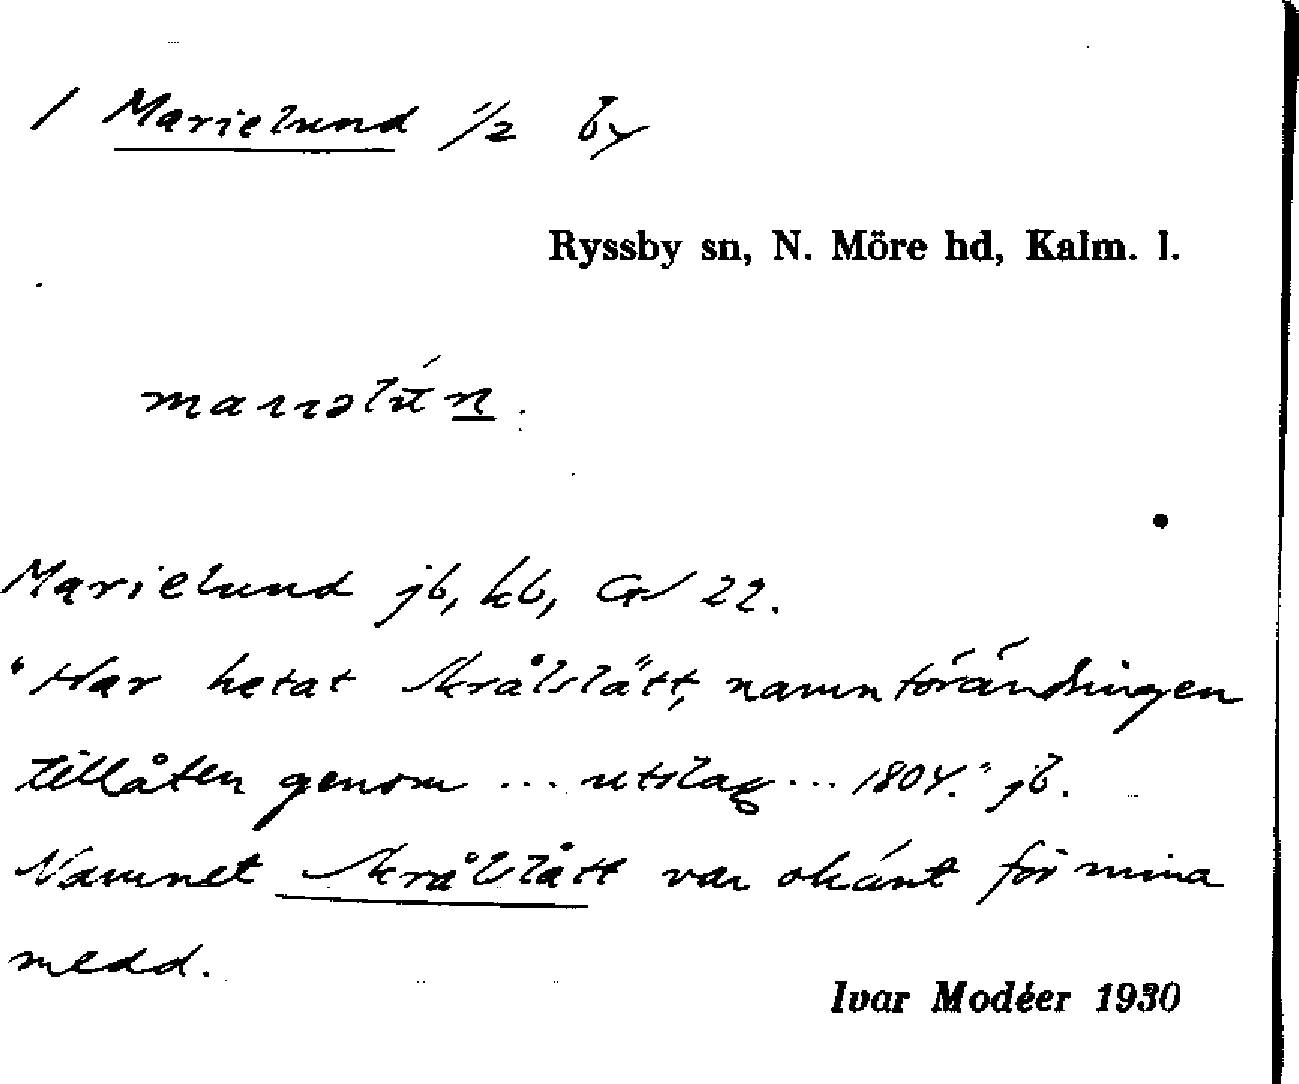 / Marielund 1/2 by
Ryssby sn, N. Möre hd, Kalm. l.
Marielund jb, kb, GV 22.
"Har hetat Skrålslätt, namnförändringen
tillåten genom ... utslag ... 1804." jb.
Namnet Skrålslått var okänt för mina
medd.
Ivar Modéer 1930